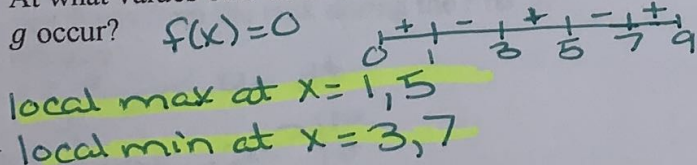 g occur? f(x)=0
+ - + - +
0 1 3 5 7 9
local max at x=1,5
local min at x=3,7